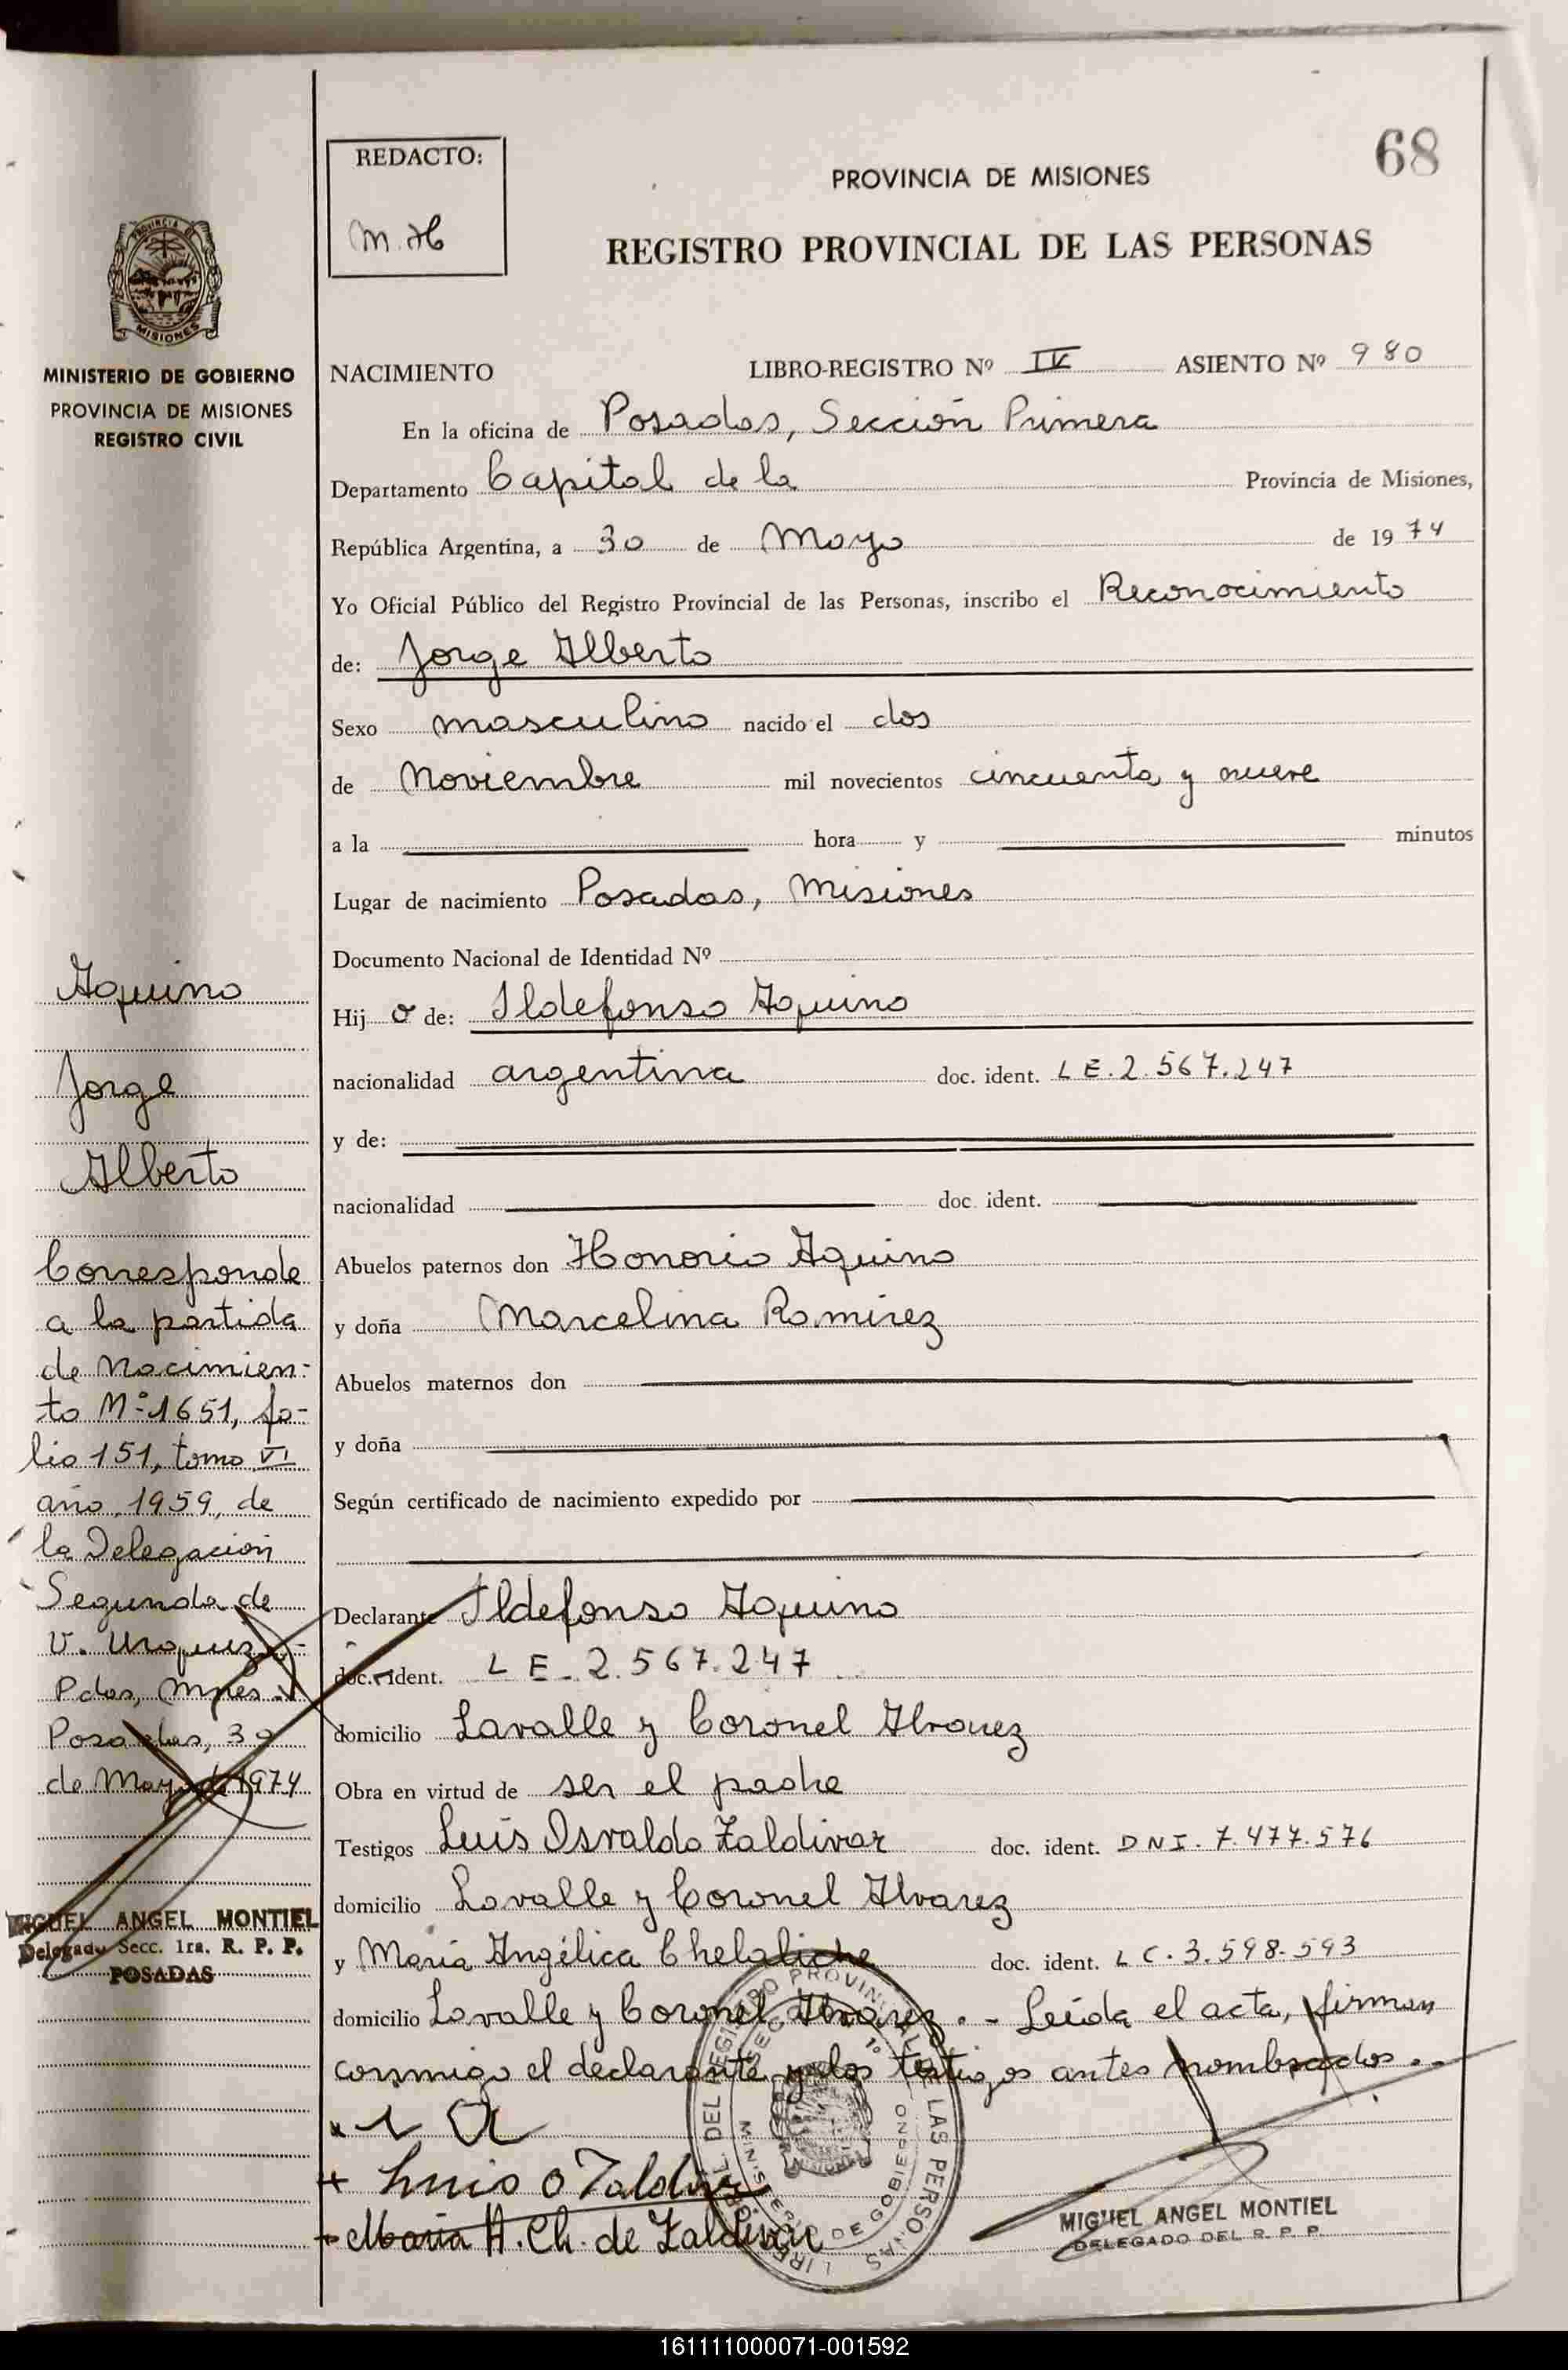 68
REDACTO:
M. H
PROVINCIA DE MISIONES
REGISTRO PROVINCIAL DE LAS PERSONAS
PROVINCIA DE
MISIONES
MINISTERIO DE GOBIERNO
PROVINCIA DE MISIONES
REGISTRO CIVIL
NACIMIENTO LIBRO-REGISTRO Nº IV ASIENTO Nº 980
En la oficina de Posadas, Sección Primera
Departamento Capital de la Provincia de Misiones,
República Argentina, a 30 de Mayo de 1974
Yo Oficial Público del Registro Provincial de las Personas, inscribo el Reconocimiento
de: Jorge Alberto
Sexo masculino nacido el dos
de Noviembre mil novecientos cincuenta y nueve
a la hora y minutos
Lugar de nacimiento Posadas, Misiones
Documento Nacional de Identidad Nº
Hijo de: Ildefonso Aquino
nacionalidad argentina doc. ident. LE.2.567.247
y de:
nacionalidad doc. ident.
Abuelos paternos don Honorio Aquino
y doña Marcelina Ramirez
Abuelos maternos don
y doña
Según certificado de nacimiento expedido por
Declarante Ildefonso Aquino
doc. ident. LE-2.567.247
domicilio Lavalle y Coronel Alvarez
Obra en virtud de ser el padre
Testigos Luis Osvaldo Zaldivar doc. ident. DNI.7.477.576
domicilio Lavalle y Coronel Alvarez
y María Angélica Chelaliche doc. ident. LC.3.598.593
domicilio Lavalle y Coronel Alvarez.- Leída el acta, firman
conmigo el declarante y los testigos antes nombrados.-
Luis O Zaldivar
María A. Ch. de Zaldivar
MIGUEL ANGEL MONTIEL
DELEGADO DEL R. P. P.
Aquino
Jorge
Alberto
Corresponde
a la partida
de Nacimien-
to Nº 1651, fo-
lio 151, tomo VI
año 1959, de
la Delegación
Segunda de
V. Urquiza-
Pdas, Mnes.
Posadas, 30
de Mayo de 1974
MIGUEL ANGEL MONTIEL
Delegado Secc. 1ra. R. P. P.
POSADAS
161111000071-001592